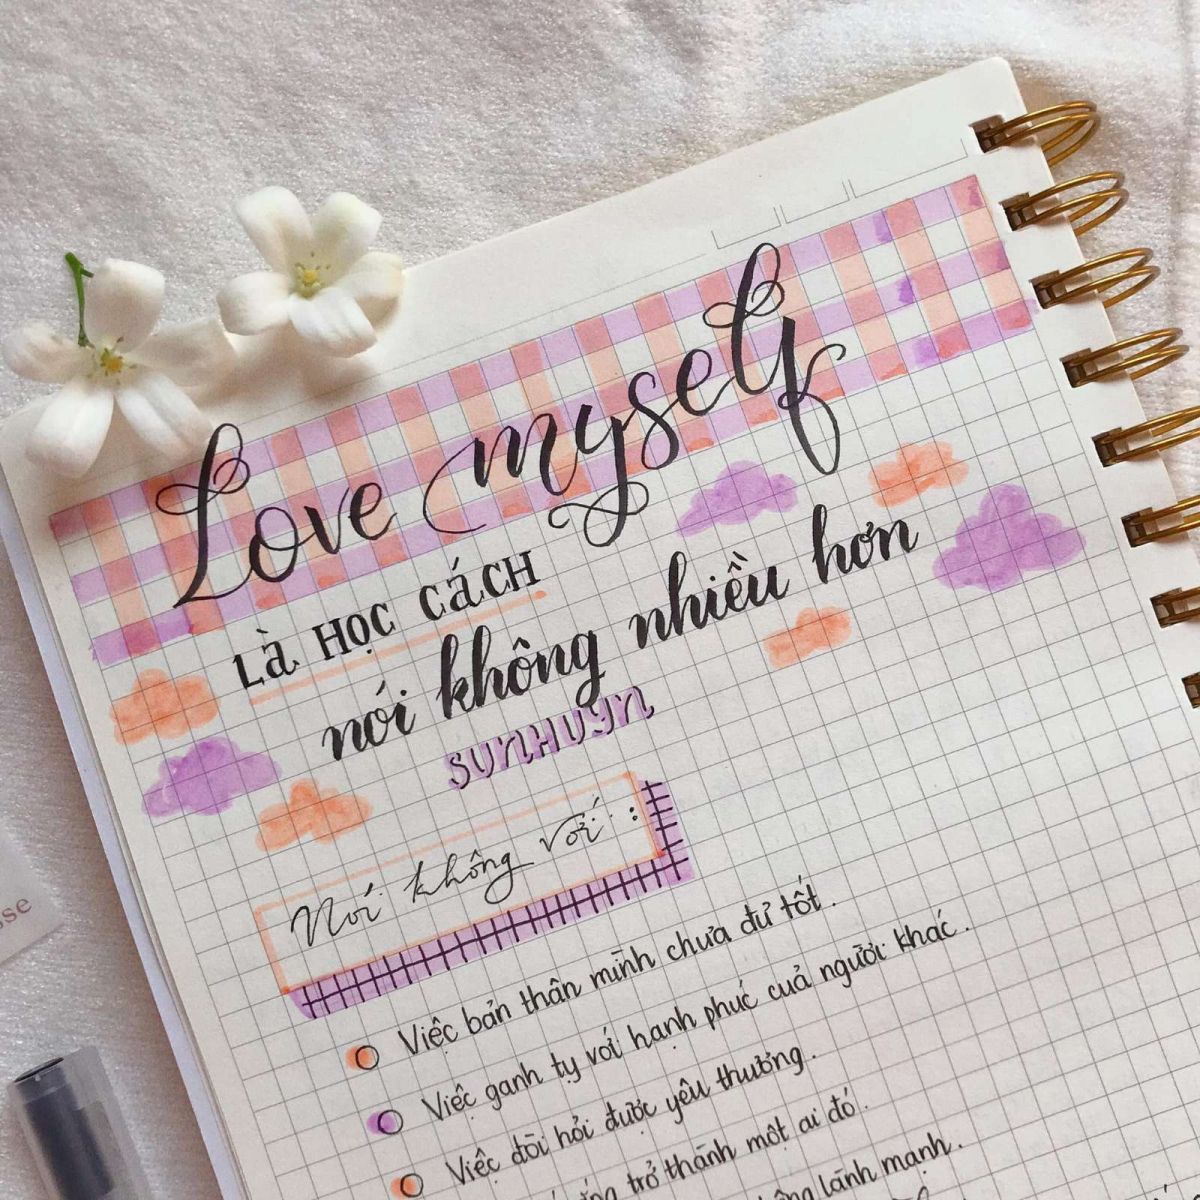 Love myself
Là HỌC CÁCH
nói không nhiều hơn
SUNHUYN
Nói không với :
Việc bản thân mình chưa đủ tốt.
Việc ganh tỵ với hạnh phúc của người khác.
Việc đòi hỏi được yêu thương.
trở thành một ai đó.
lành mạnh.